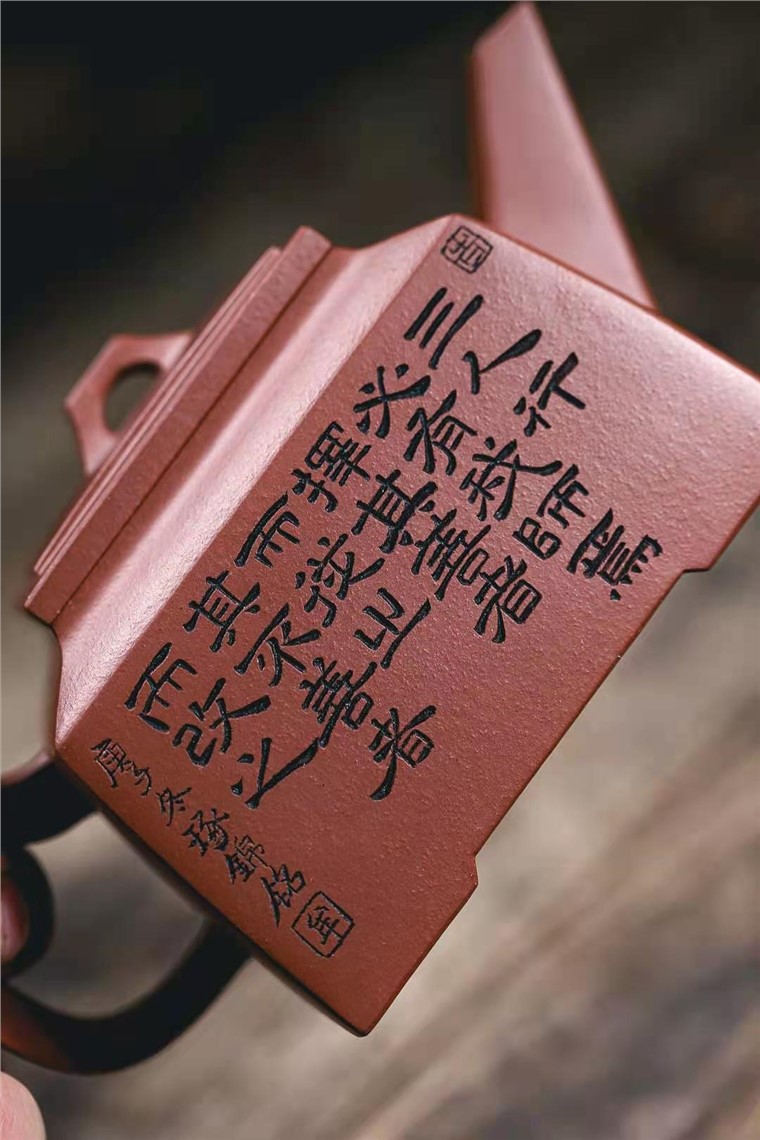 三人行
必有我師焉
擇其善者
而從之
其不善者
而改之
庚子冬琢錦銘